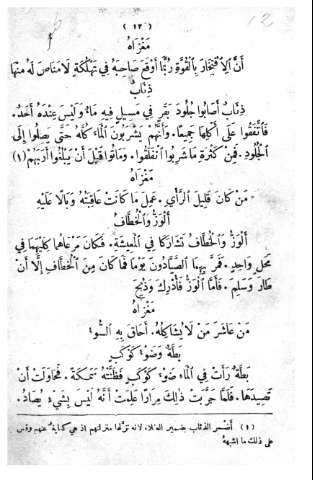 (١٢)
12
مَغْزَاهُ
أَنَّ الِافْتِخَارَ بِالْقُوَّةِ رُبَّمَا أَوْقَعَ صَاحِبَهُ فِي تَهْلُكَةٍ لَا مَنَاصَ لَهُ مِنْهَا
ذِئَابٌ
ذِئَابٌ أَصَابُوا جُلُودَ بَقَرٍ فِي مَسِيلٍ فِيهِ مَاءٌ وَلَيْسَ عِنْدَهُ أَحَدٌ.
فَاتَّفَقُوا عَلَى أَكْلِهَا جَمِيعًا. وَأَنَّهُمْ يَشْرَبُونَ الْمَاءَ كُلَّهُ حَتَّى يَصِلُوا إِلَى
الْجُلُودِ. فَمِنْ كَثْرَةِ مَا شَرِبُوا انْفَلَقُوا. وَمَاتُوا قَبْلَ أَنْ يَبْلُغُوا أَرَبَهُمْ (١)
مَغْزَاهُ
مَنْ كَانَ قَلِيلَ الرَّأْيِ. عَمِلَ مَا كَانَتْ عَاقِبَتُهُ وَبَالًا عَلَيْهِ
أَلْوَزُّ وَالْخُطَّافُ
أَلْوَزُّ وَالْخُطَّافُ تَشَارَكَا فِي الْمَعِيشَةِ. فَكَانَ مَرْعَاهُمَا كِلَيْهِمَا فِي
مَحَلٍّ وَاحِدٍ. فَمَرَّ بِهِمَا الصَّيَّادُونَ يَوْمًا فَمَا كَانَ مِنَ الْخُطَّافِ إِلَّا أَنْ
طَارَ وَسَلِمَ. فَأَمَّا الْوَزُّ فَأُدْرِكَ وَذُبِحَ
مَغْزَاهُ
مَنْ عَاشَرَ مَنْ لَا يُشَاكِلُهُ. أَحَاقَ بِهِ السُّوءُ
بَطَّةٌ وَضَوْءُ كَوْكَبٍ
بَطَّةٌ رَأَتْ فِي الْمَاءِ ضَوْءَ كَوْكَبٍ فَظَنَّتْهُ سَمَكَةً. فَحَاوَلَتْ أَنْ
تَصِيدَهَا. فَلَمَّا جَرَّبَتْ ذٰلِكَ مِرَارًا عَلِمَتْ أَنَّهُ لَيْسَ بِشَيْءٍ يُصَادُ.
(١) أضمر الذئاب بضمير العقلاء لانه نزّلها منزلتهم اذ هي كناية عنهم وقس
على ذلك ما اشبهه